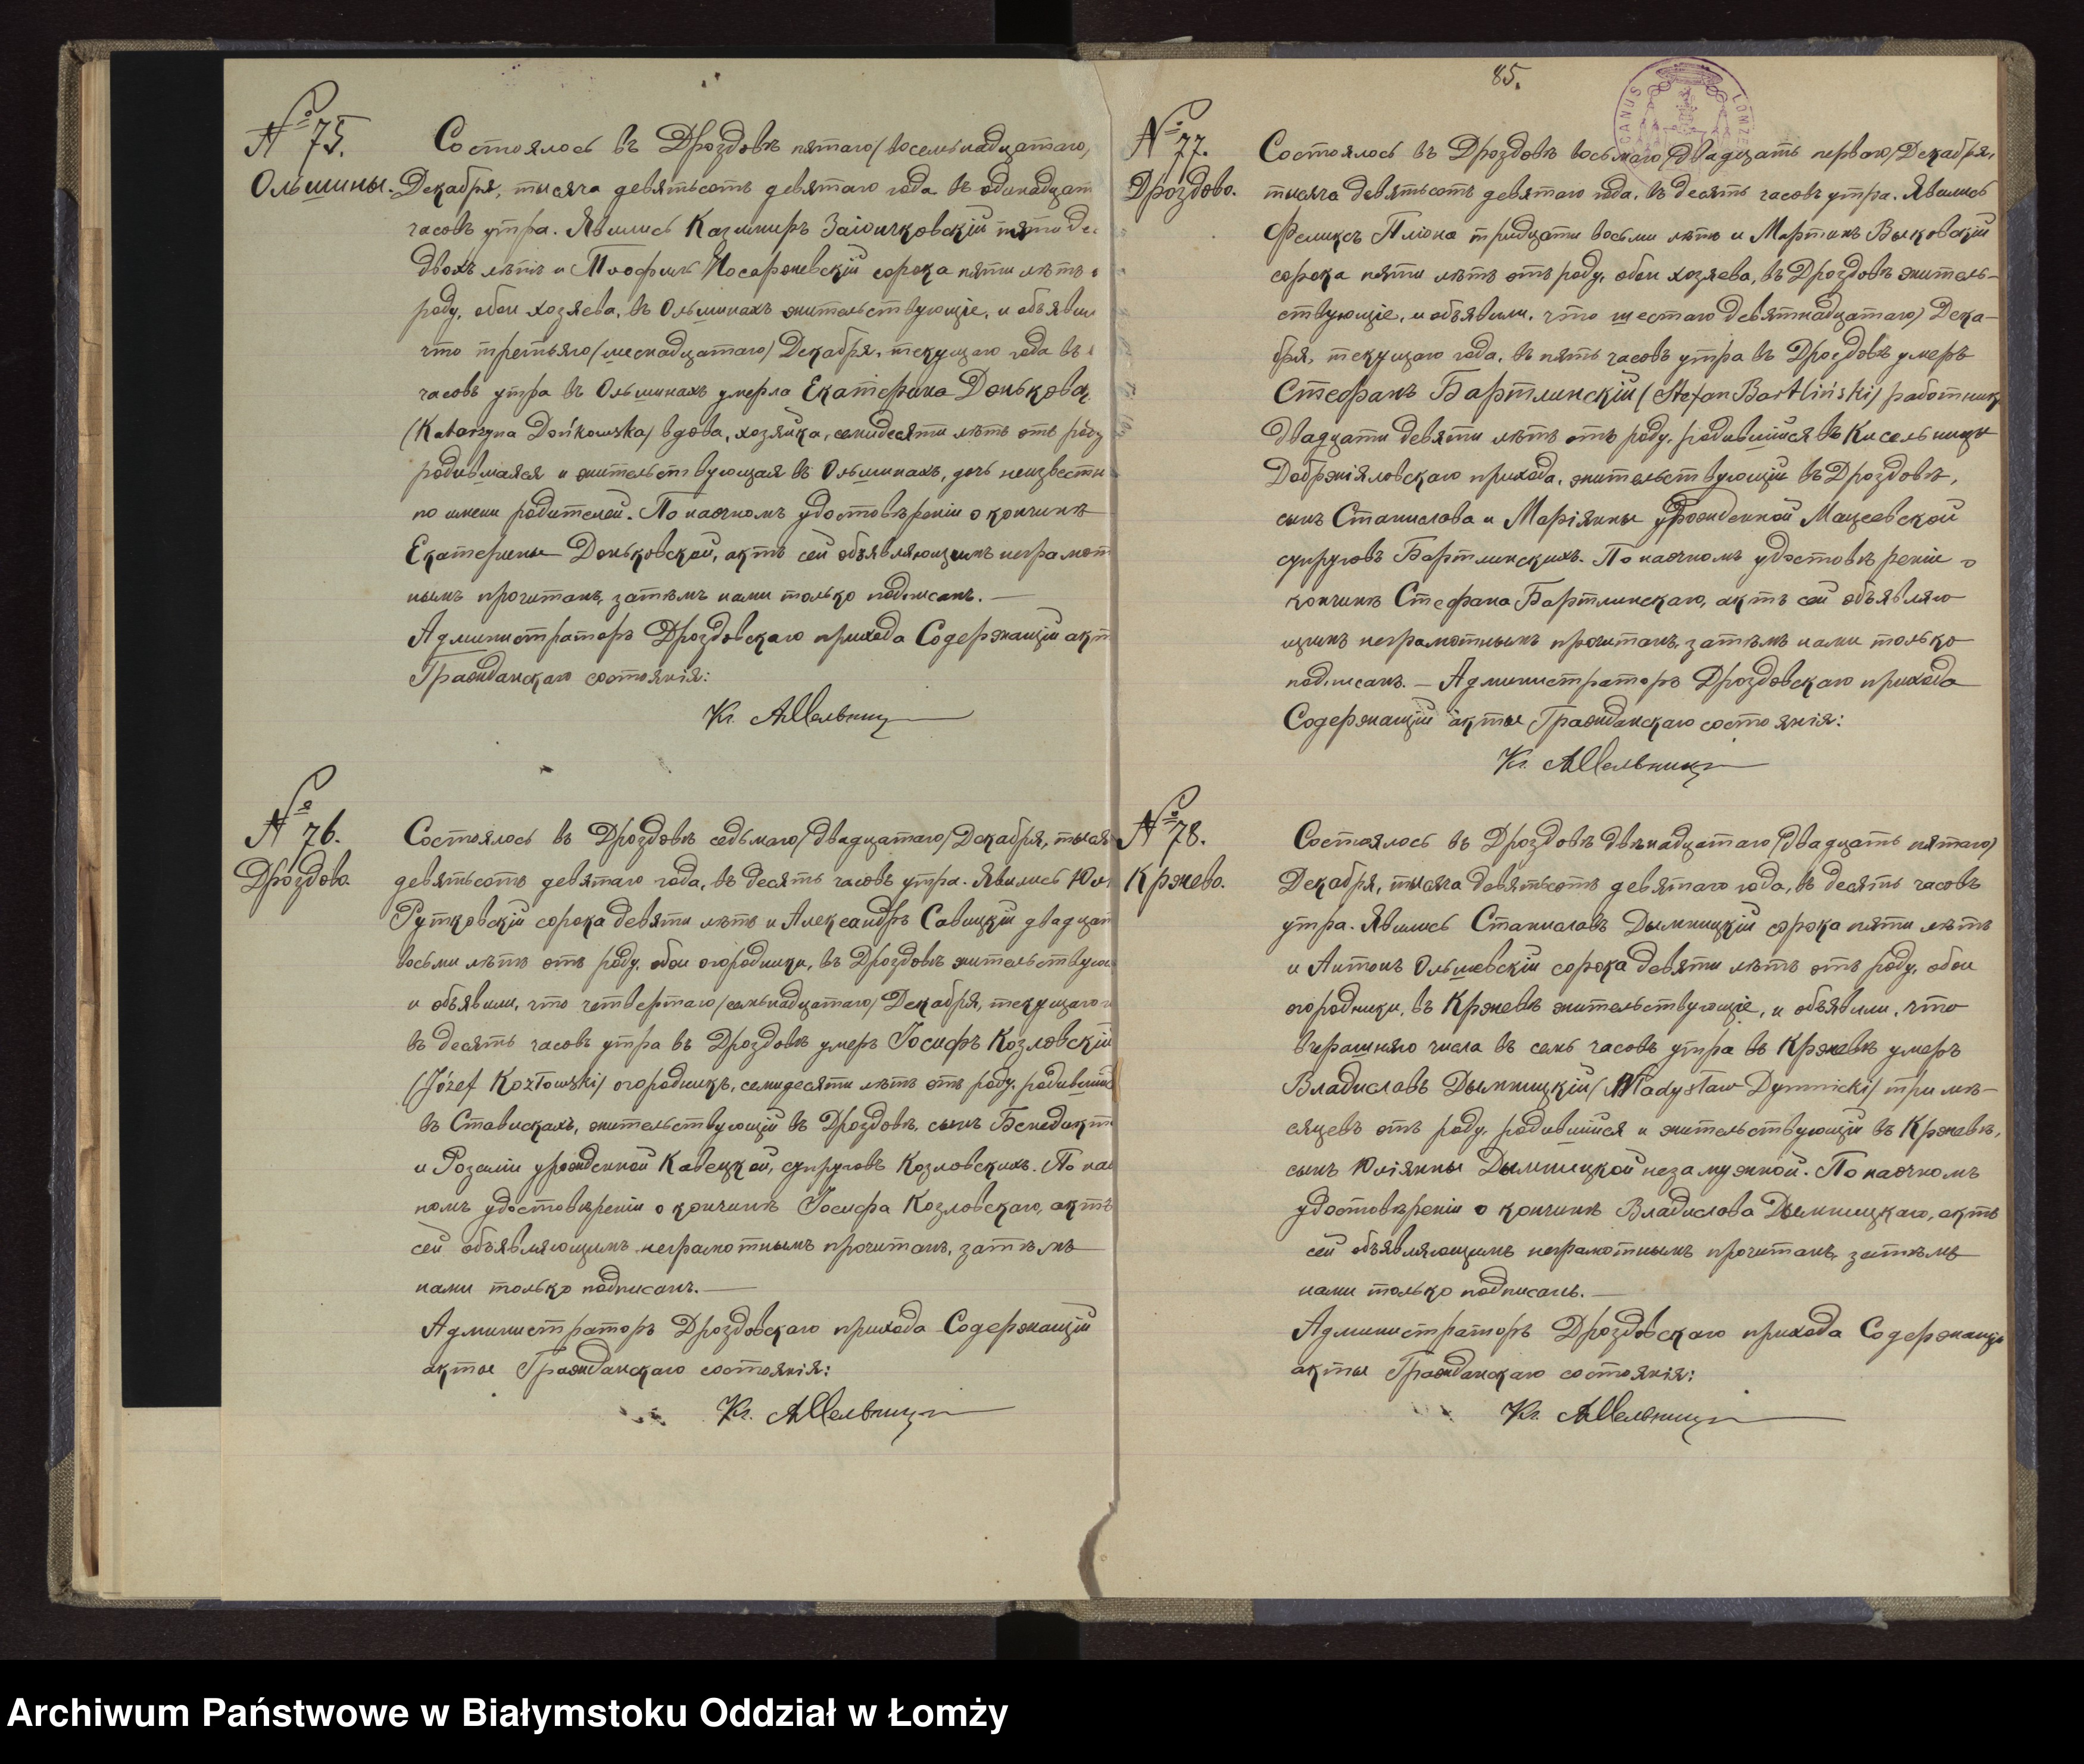 № 75.
Ольшины.
Состоялось въ Дроздовѣ пятаго (восемьнадцатаго)
Декабря, тысяча девятьсотъ девятаго года въ одинадцат
часовъ утра. Явились Казимиръ Заіончковскій пятиде
двохъ лѣтъ и Теофилъ сорока пяти лѣтъ о
роду, обои хозяева, въ Ольшинахъ жительствующіе, и объявил
что третьяго (шеснадцатаго) Декабря, текущаго года въ
часовъ утра въ Ольшинахъ умерла Екатерина Доньковск
(Katarzyna Dońkowska) вдова, хозяйка, семидесяти лѣтъ отъ роду
родившаяся и жительствующая въ Ольшинахъ, дочь неизвестн
по имени родителей. По наочномъ удостовѣреніи о кончинѣ
Екатерины Доньковской, актъ сей объявляющимъ неграмот
нымъ прочитанъ, затѣмъ нами только подписанъ. —
Администраторъ Дроздовскаго прихода Содержащій акт
Гражданскаго состоянія:
Кс. АМельниц
№ 76.
Дроздово.
Состоялось въ Дроздовѣ седьмаго (двадцатаго) Декабря, тысяч
девятьсотъ девятаго года, въ десять часовъ утра. Явились Юл
Рутковскій сорока девяти лѣтъ и Александръ Савицкій двадцат
восьми лѣтъ отъ роду, обои огородники, въ Дроздовѣ жительствую
и объявили, что четвертаго (семьнадцатаго) Декабря, текущаго г
въ десять часовъ утра въ Дроздовѣ умеръ Іосифъ Козловскій
(Józef Kozłowski) огородникъ, семидесяти лѣтъ отъ роду, родившійс
въ Ставискахъ, жительствующій въ Дроздовѣ, сынъ Бенедикт
и Розаліи урожденной Кавецкой, супруговъ Козловскихъ. По нао
номъ удостовѣреніи о кончинѣ Іосифа Козловскаго, актъ
сей объявляющимъ неграмотнымъ прочитанъ, затѣмъ
нами только подписанъ. —
Администраторъ Дроздовскаго прихода Содержащій
акты Гражданскаго состоянія:
Кс. АМельниц
85.
№ 77.
Дроздово.
Состоялось въ Дроздовѣ восьмаго (двадцать перваго) Декабря,
тысяча девятьсотъ девятаго года, въ десять часовъ утра. Явились
Феликсъ Пліона тридцати восьми лѣтъ и Мартинъ Выковскій
сорока пяти лѣтъ отъ роду, обои хозяева, въ Дроздовѣ житель-
ствующіе, и объявили, что шестаго девятнадцатаго) Дека-
бря, текущаго года, въ пять часовъ утра въ Дроздовѣ умеръ
Стефанъ Бартлинскій (Stefan Bartliński) работникъ
двадцати девяти лѣтъ отъ роду, родившійся въ Кисельницы
Добржіяловскаго прихода, жительствующій въ Дроздовѣ,
сынъ Станислава и Маріянны урожденной Мацеевской
супруговъ Бартлинскихъ. По наочномъ удостовѣреніи о
кончинѣ Стефана Бартлинскаго, актъ сей объявляю
щимъ неграмотнымъ прочитанъ, затѣмъ нами только
подписанъ. — Администраторъ Дроздовскаго прихода
Содержащій акты Гражданскаго состоянія:
Кс. АМельниц
№ 78.
Кржево.
Состоялось въ Дроздовѣ двѣнадцатаго (двадцать пятаго)
Декабря, тысяча девятьсотъ девятаго года, въ десять часовъ
утра. Явились Станиславъ Дымницкій сорока пяти лѣтъ
и Антонъ Ольшевскій сорока девяти лѣтъ отъ роду, обои
огородники, въ Кржевѣ жительствующіе, и объявили, что
вчерашняго числа въ семь часовъ утра въ Кржевѣ умеръ
Владиславъ Дымницкій (Władysław Dymnicki) три мѣ-
сяцевъ отъ роду, родившійся и жительствующій въ Кржевѣ,
сынъ Юліянны Дымницкой незамужной. По наочномъ
удостовѣреніи о кончинѣ Владислава Дымницкаго, актъ
сей объявляющимъ неграмотнымъ прочитанъ, затѣмъ
нами только подписанъ. —
Администраторъ Дроздовскаго прихода Содержащій
акты Гражданскаго состоянія:
Кс. АМельниц
Archiwum Państwowe w Białymstoku Oddział w Łomży